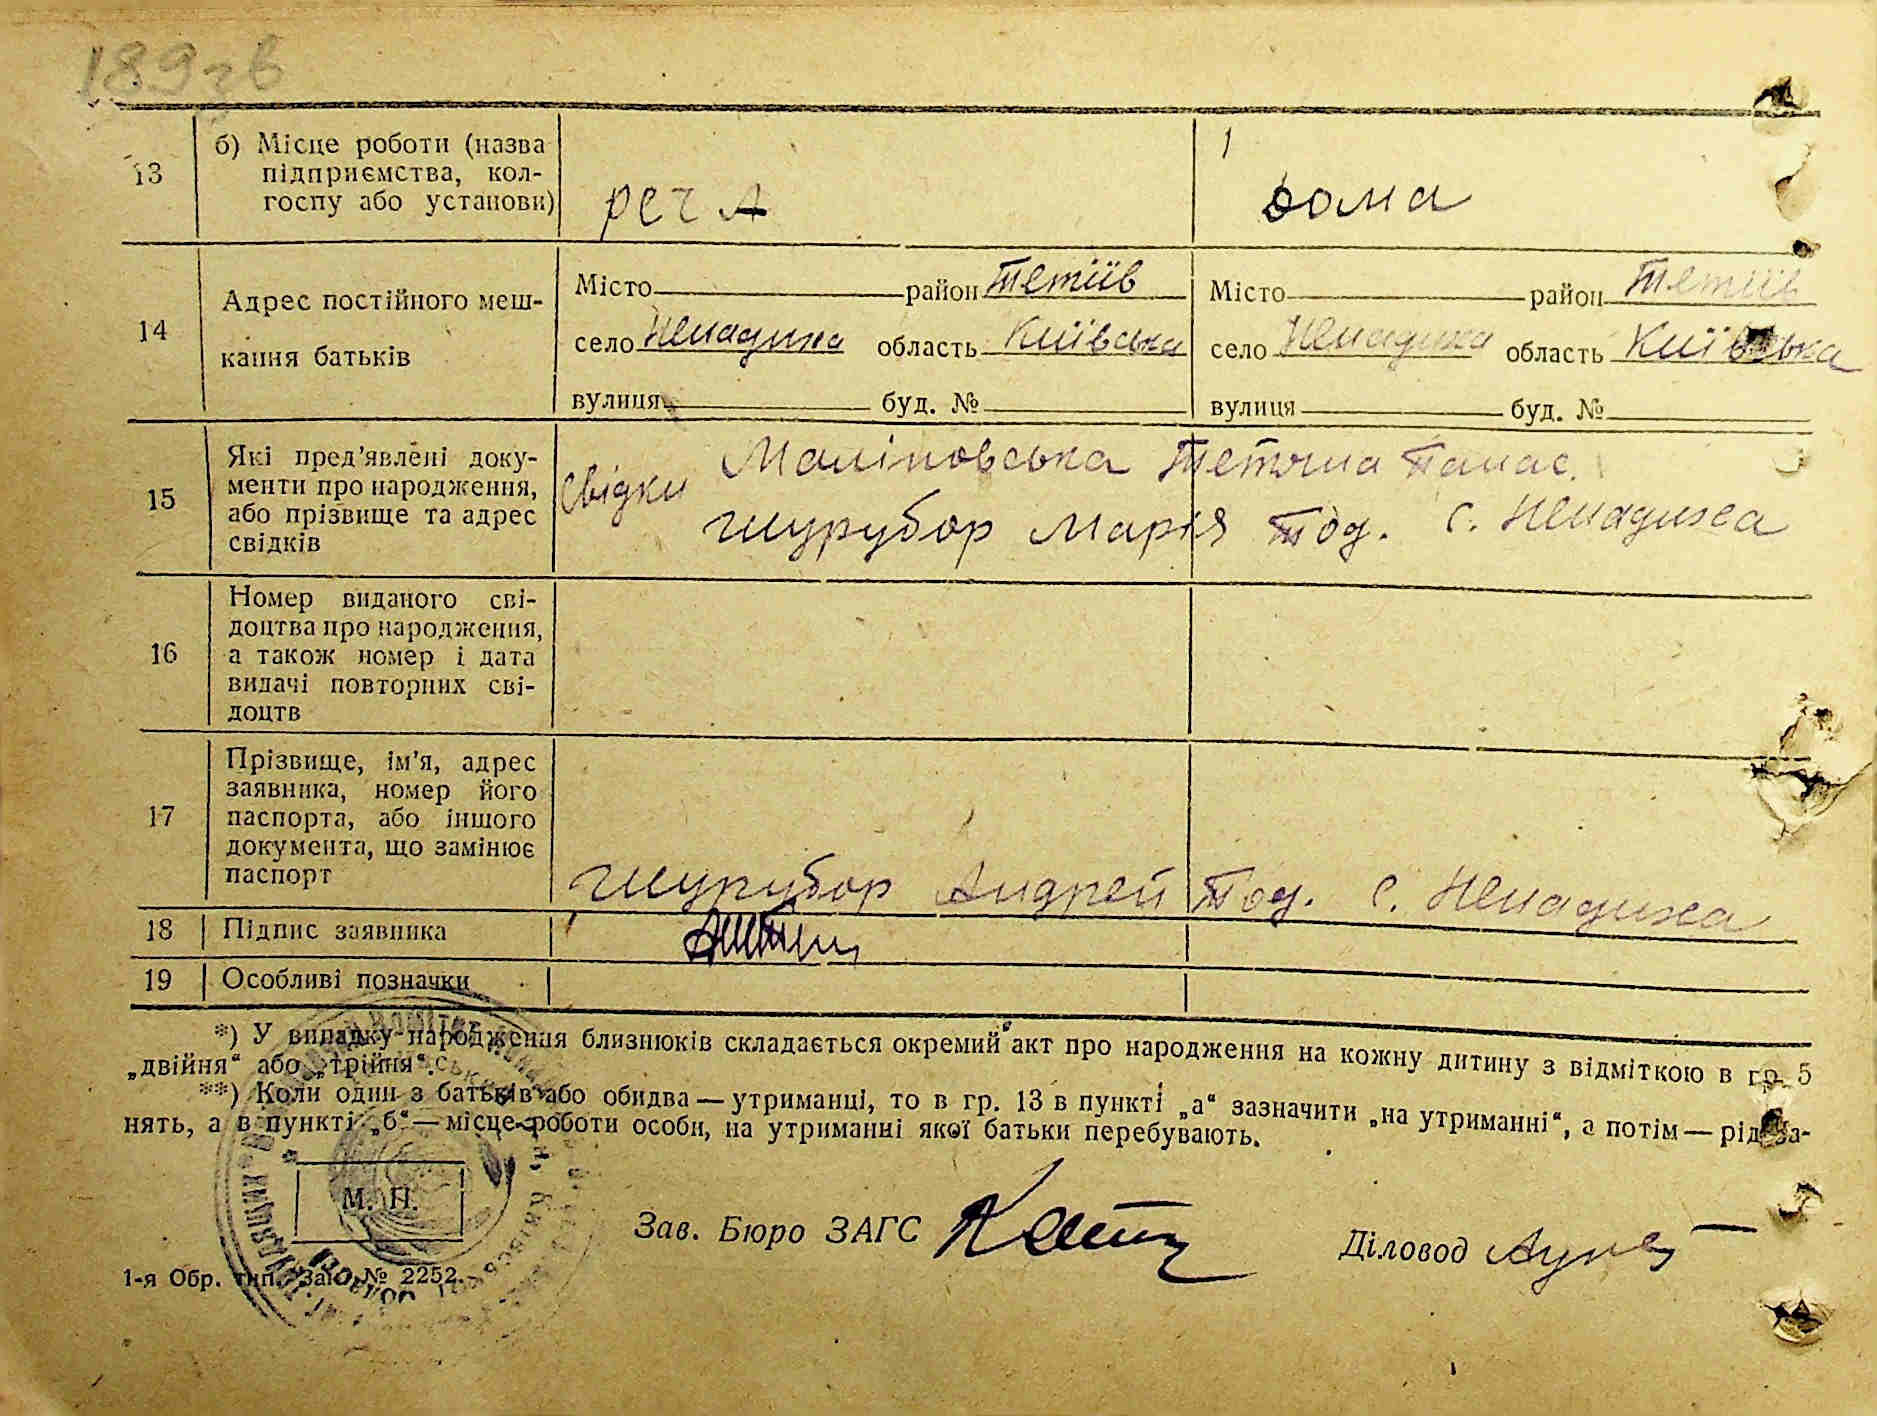 189 зв
13
б) Місце роботи (назва
підприємства, кол-
госпу або установи)
дома
14
Адрес постійного меш-
кання батьків
Місто район Тетіїв
село Ненадиха область Київська
вулиця буд. №
Місто район Тетіїв
село Ненадиха область Київська
вулиця буд. №
15
Які пред’явлені доку-
менти про народження,
або прізвище та адрес
свідків
свідки Маліновська Тетяна Панас.
Шурубор Марія Тод. с. Ненадиха
16
Номер виданого сві-
доцтва про народження,
а також номер і дата
видачі повторних сві-
доцтв
17
Прізвище, ім’я, адрес
заявника, номер його
паспорта, або іншого
документа, що замінює
паспорт
Шурубор Андрей Тод. с. Ненадиха
18 Підпис заявника
19 Особливі позначки
*) У випадку народження близнюків складається окремий акт про народження на кожну дитину з відміткою в гр. 5
„двійня“ або „трійня“.
**) Коли один з батьків або обидва — утриманці, то в гр. 13 в пункті „а“ зазначити „на утриманні“, а потім — рід за-
нять, а в пункті „б“ — місце роботи особи, на утриманні якої батьки перебувають.
М. П.
Зав. Бюро ЗАГС
Діловод
1-я Обр. тип. Зак. № 2252.